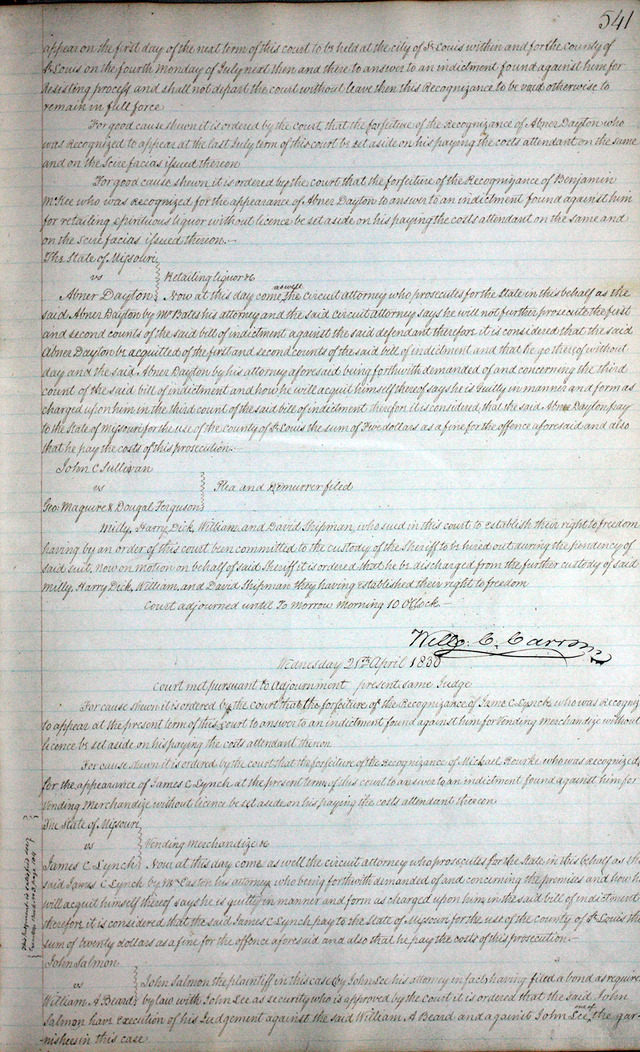 541
appear on the first day of the next term of this court to be held at the city of St Louis within and for the county of
St Louis on the fourth Monday of July next then and there to answer to an indictment found against him for
resisting process and shall not depart the court without leave then this Recognizance to be void otherwise to
remain in full force
For good cause shewn it is ordered by the court that the forfeiture of the Recognizance of Abner Dayton who
was recognized to appear at the last July term of this court be set aside on his paying the costs attendant on the same
and on the Scire facias issued thereon
For good cause shewn it is ordered by the court that the forfeiture of the Recognizance of Benjamin
McKee who was recognized for the appearance of Abner Dayton to answer to an indictment found against him
for retailing spirituous liquor without licence be set aside on his paying the costs attendant on the same and
on the Scire facias issued thereon.—
The State of Missouri
vs Retailing liquor &c
Abner Dayton Now at this day come as well the circuit attorney who prosecutes for the State in this behalf as the
said Abner Dayton by Mr Bates his attorney and the said circuit attorney says he will not further prosecute the first
and second counts of the said bill of indictment against the said defendant therefore it is considered that the said
Abner Dayton be acquitted of the first and second counts of the said bill of indictment and that he go thereof without
day and the said Abner Dayton by his attorney aforesaid being forthwith demanded of and concerning the third
count of the said bill of indictment and how he will acquit himself thereof says he is Guilty in manner and form as
charged upon him in the third count of the said bill of indictment therefore it is considered that the said Abner Dayton pay
to the State of Missouri for the use of the county of St Louis the sum of Five dollars as a fine for the offence aforesaid and also
that he pay the costs of this prosecution.—
John C Sullivan
vs Plea and Demurrer filed
Geo: Maguire & Dougal Ferguson
Milly, Harry, Dick, William, and David Shipman, who sued in this court to establish their right to freedom
having by an order of this court been committed to the custody of the Sheriff to be hired out during the pendency of
said suit, now on motion on behalf of said Sheriff it is ordered that he be discharged from the further custody of said
Milly, Harry Dick, William, and David Shipman they having established their right to freedom
Court adjourned until To morrow morning 10 O'Clock—
Will: C. Carr
Wednesday 21st April 1830
Court met pursuant to Adjournment present same Judge
For cause shewn it is ordered by the Court that the forfeiture of the Recognizance of James C Lynch who was recogniz
to appear at the present term of this court to answer to an indictment found against him for Vending merchandize without
licence be set aside on his paying the costs attendant thereon
For cause shewn it is ordered by the court that the forfeiture of the Recognizance of Michael Rourke who was recognized
for the appearance of James C Lynch at the present term of this court to answer to an indictment found against him for
Vending Merchandize without licence be set aside on his paying the costs attendant thereon
The State of Missouri
vs Vending merchandize &c
James C Lynch Now at this day come as well the circuit attorney who prosecutes for the State in this behalf as the
said James C Lynch by Mr Easton his attorney who being forthwith demanded of and concerning the premises and how h
will acquit himself thereof says he is guilty in manner and form as charged upon him in the said bill of indictment
therefore it is considered that the said James C Lynch pay to the State of Missouri for the use of the county of St Louis the
sum of twenty dollars as a fine for the offence aforesaid and also that he pay the costs of this prosecution.—
John Salmon
vs John Salmon the plaintiff in this case (by John Lee his attorney in fact) having filed a bond as require
William A Beard by law with John Lee as security who is approved by the court it is ordered that the said John
Salmon have execution of his Judgement against the said William A Beard and against John Lee one of the gar-
nishees in this case